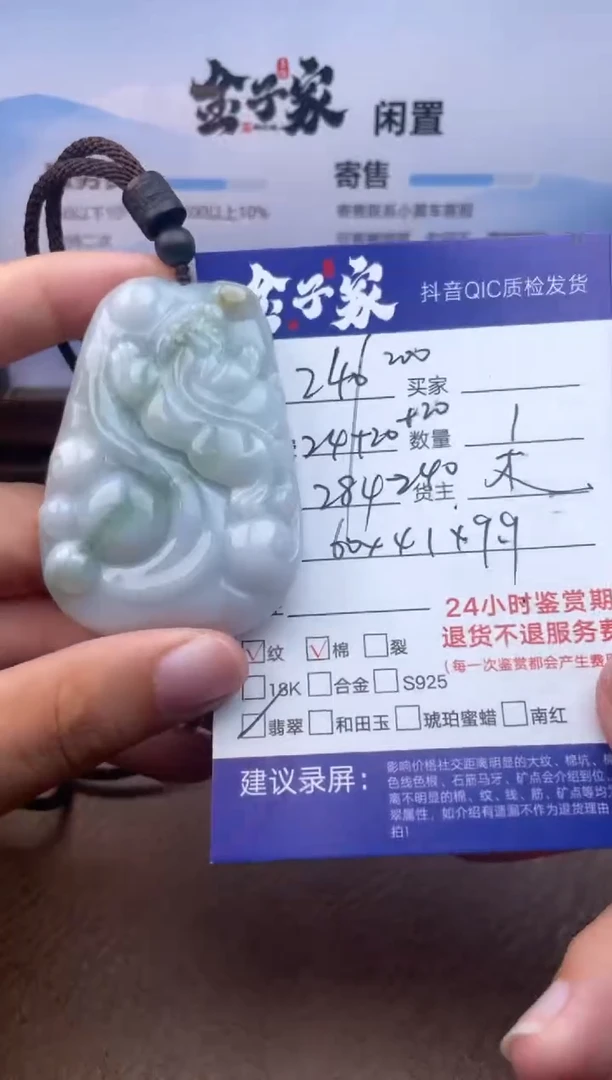 金子家 闲置
寄售
以下1 00以上10%
金子家 抖音QIC质检发货
240 200 买家
24+20 +20 数量 1
284-240 货主 木
60×41×9.9
24小时鉴赏期
退货不退服务费
(每一次鉴赏都会产生费
纹 棉 裂
18K 合金 S925
翡翠 和田玉 琥珀蜜蜡 南红
建议录屏：
影响价格社交距离明显的大纹、棉坑、
色线色根、石筋马牙、矿点会介绍到位
离不明显的棉、纹、线、筋、矿点等均
翠属性，如介绍有遗漏不作为退货理由
拍！